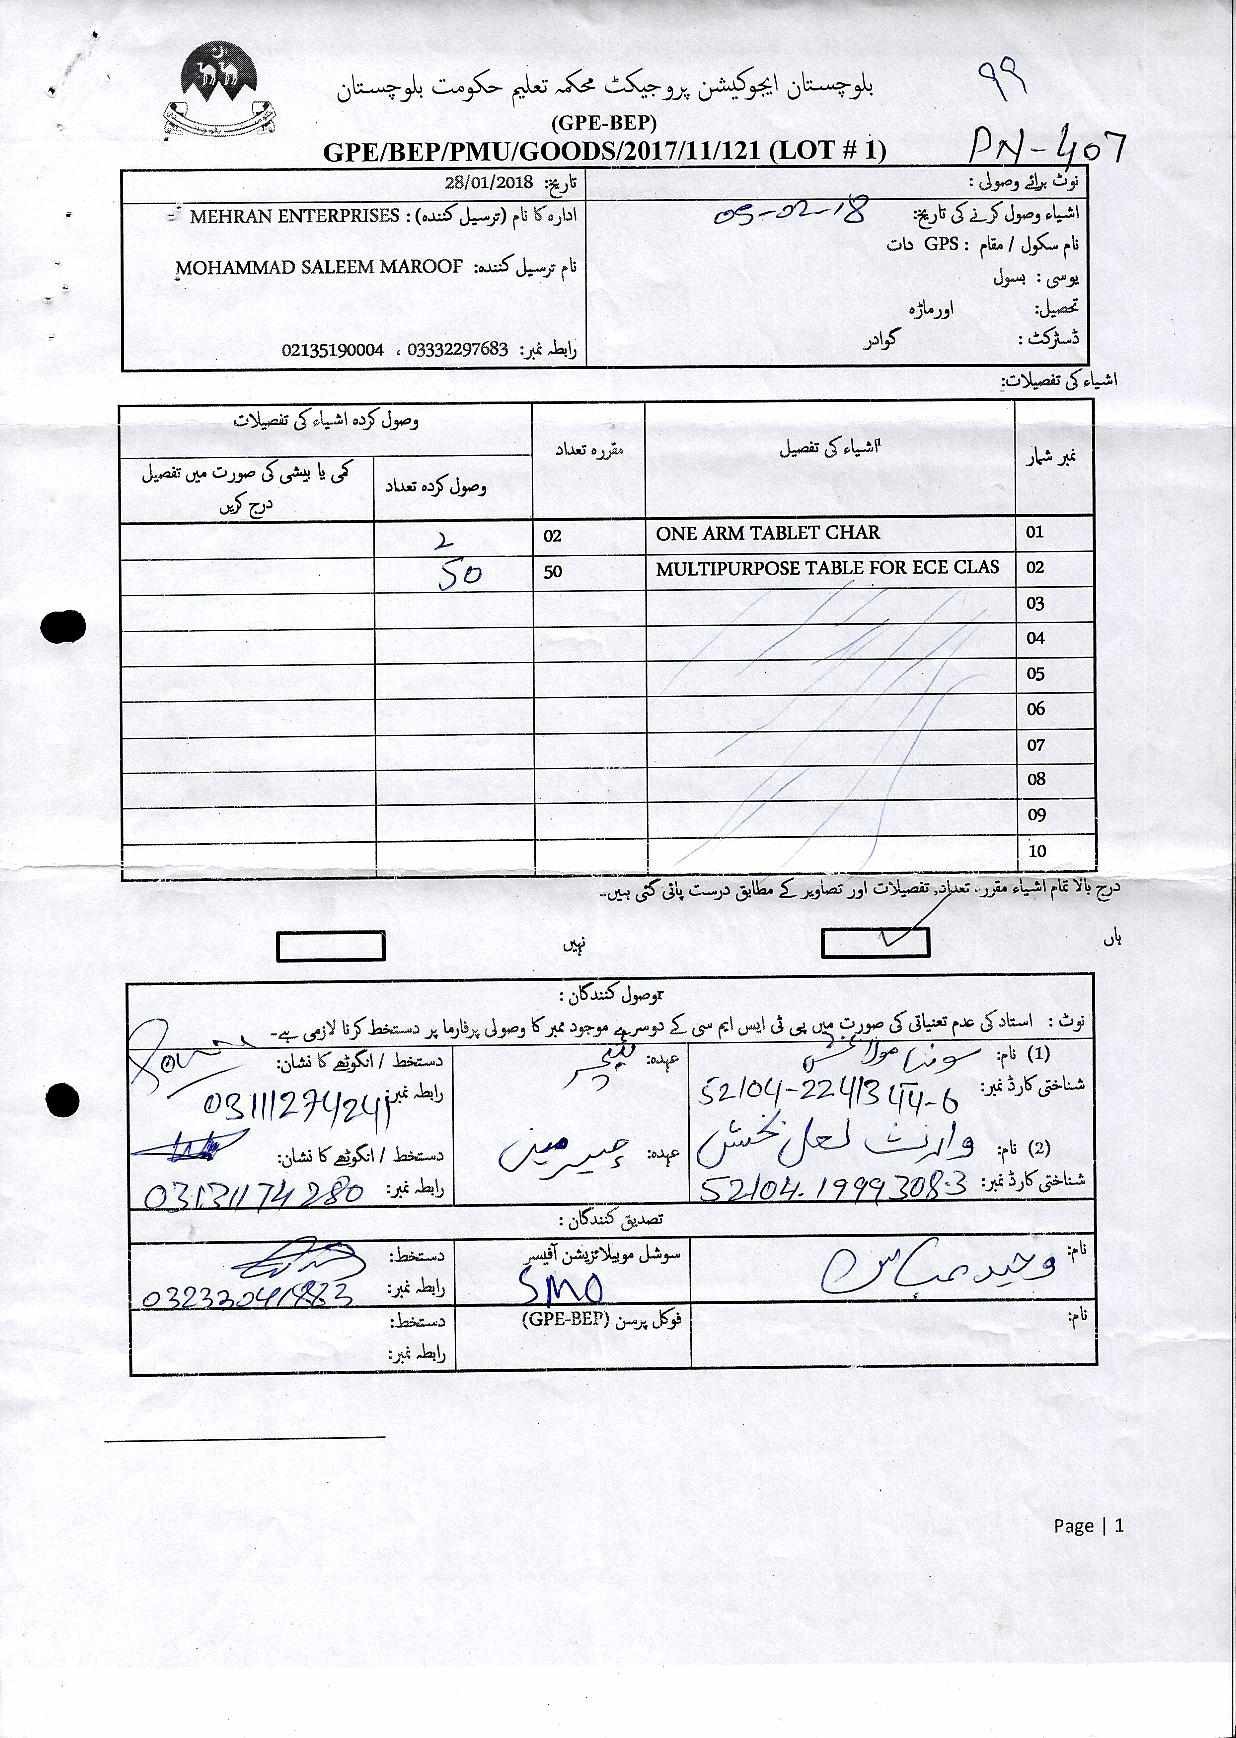 بلوچستان ایجوکیشن پروجیکٹ محکمہ تعلیم حکومت بلوچستان
۹۹
(GPE-BEP)
GPE/BEP/PMU/GOODS/2017/11/121 (LOT # 1)
PN-407
نوٹ برائے وصولی :
تاریخ: 28/01/2018
اشیاء وصول کرنے کی تاریخ: 05-02-18
ادارہ کا نام (ترسیل کنندہ) : MEHRAN ENTERPRISES
نام سکول / مقام : GPS دات
نام ترسیل کنندہ: MOHAMMAD SALEEM MAROOF
یوسی : بسول
تحصیل: اورماڑہ
ڈسٹرکٹ : گوادر
رابطہ نمبر: 03332297683 ، 02135190004
اشیاء کی تفصیلات:
نمبر شمار اشیاء کی تفصیل مقررہ تعداد وصول کردہ اشیاء کی تفصیلات
وصول کردہ تعداد کمی یا بیشی کی صورت میں تفصیل درج کریں
01 ONE ARM TABLET CHAR 02 2
02 MULTIPURPOSE TABLE FOR ECE CLAS 50 50
03
04
05
06
07
08
09
10
درج بالا تمام اشیاء مقررہ تعداد, تفصیلات اور تصاویر کے مطابق درست پائی گئی ہیں۔
ہاں نہیں
وصول کنندگان :
نوٹ : استاد کی عدم تعنیاتی کی صورت میں پی ٹی ایس ایم سی کے دوسرے موجود ممبر کا وصولی پرفارما پر دستخط کرنا لازمی ہے۔
(1) نام: عہدہ: ٹیچر دستخط / انگوٹھے کا نشان:
شناختی کارڈ نمبر: 52104-2241344-6 رابطہ نمبر: 03111274241
(2) نام: وارث لعل بخش عہدہ: چیرمین دستخط / انگوٹھے کا نشان:
شناختی کارڈ نمبر: 52104.1999308.3 رابطہ نمبر: 03131174280
تصدیق کنندگان :
نام: وحید عباس سوشل موبیلائزیشن آفیسر دستخط:
SMO رابطہ نمبر:
نام: فوکل پرسن (GPE-BEP) دستخط:
رابطہ نمبر:
Page | 1